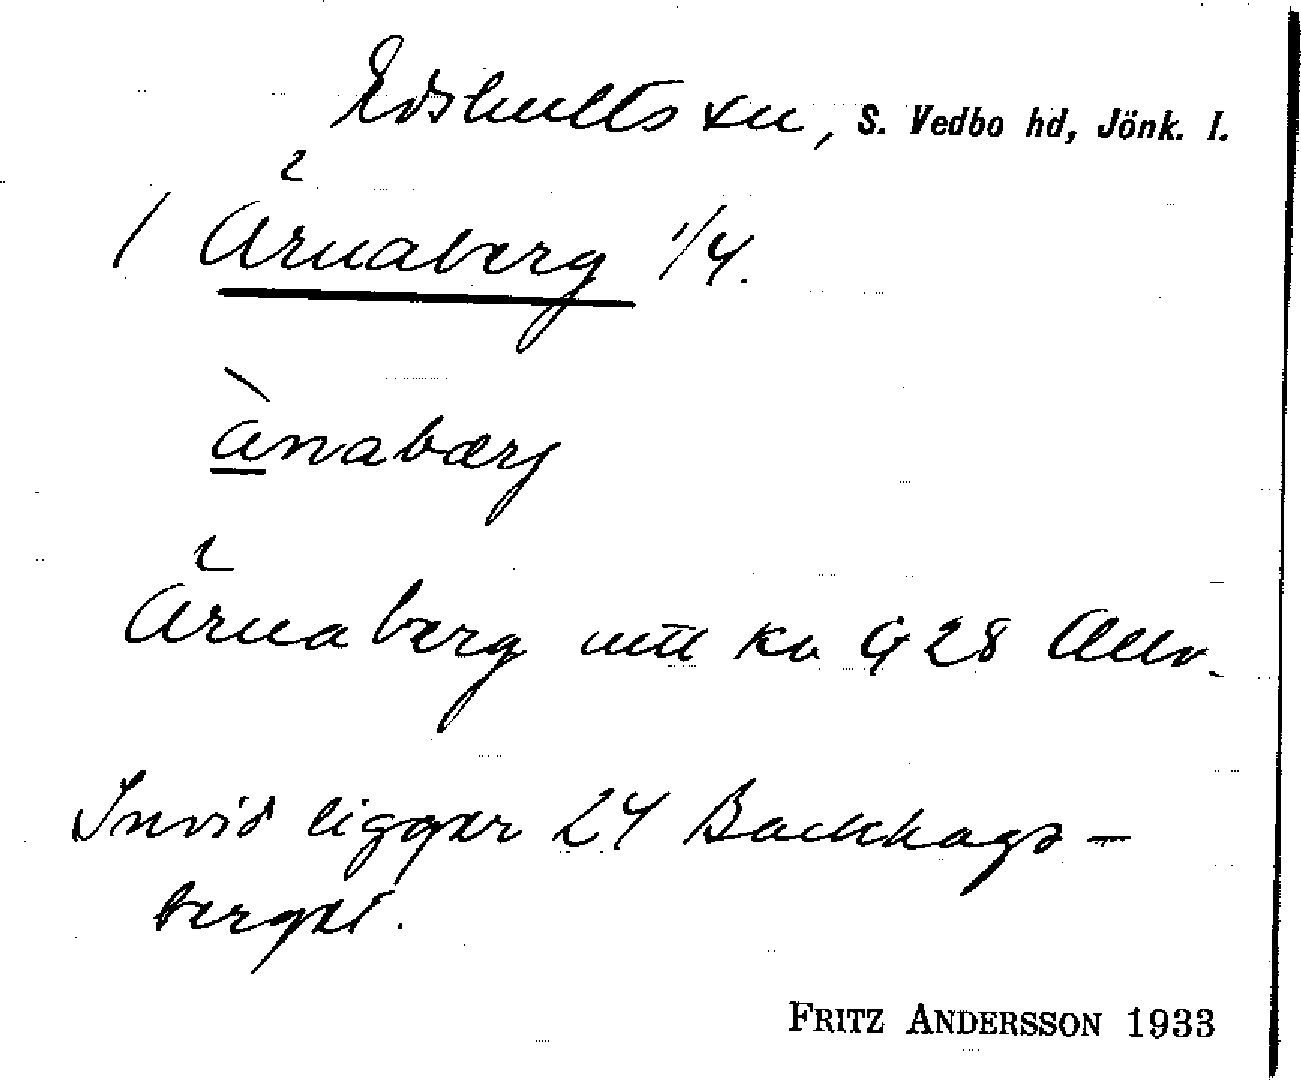 Edshults sn, S. Vedbo hd, Jönk. l.
/ Ärnaberg 1/4.
ànabærj
Ärnaberg utt kv G 28 Allv.
Invid ligger 24 Backhags-
berget.
FRITZ ANDERSSON 1933